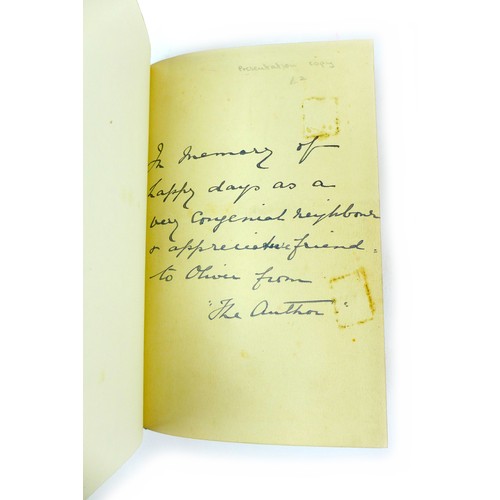 Presentation copy
In memory of
happy days as a
very congenial neighbour
& appreciative friend.
to Oliver from
"The Author"